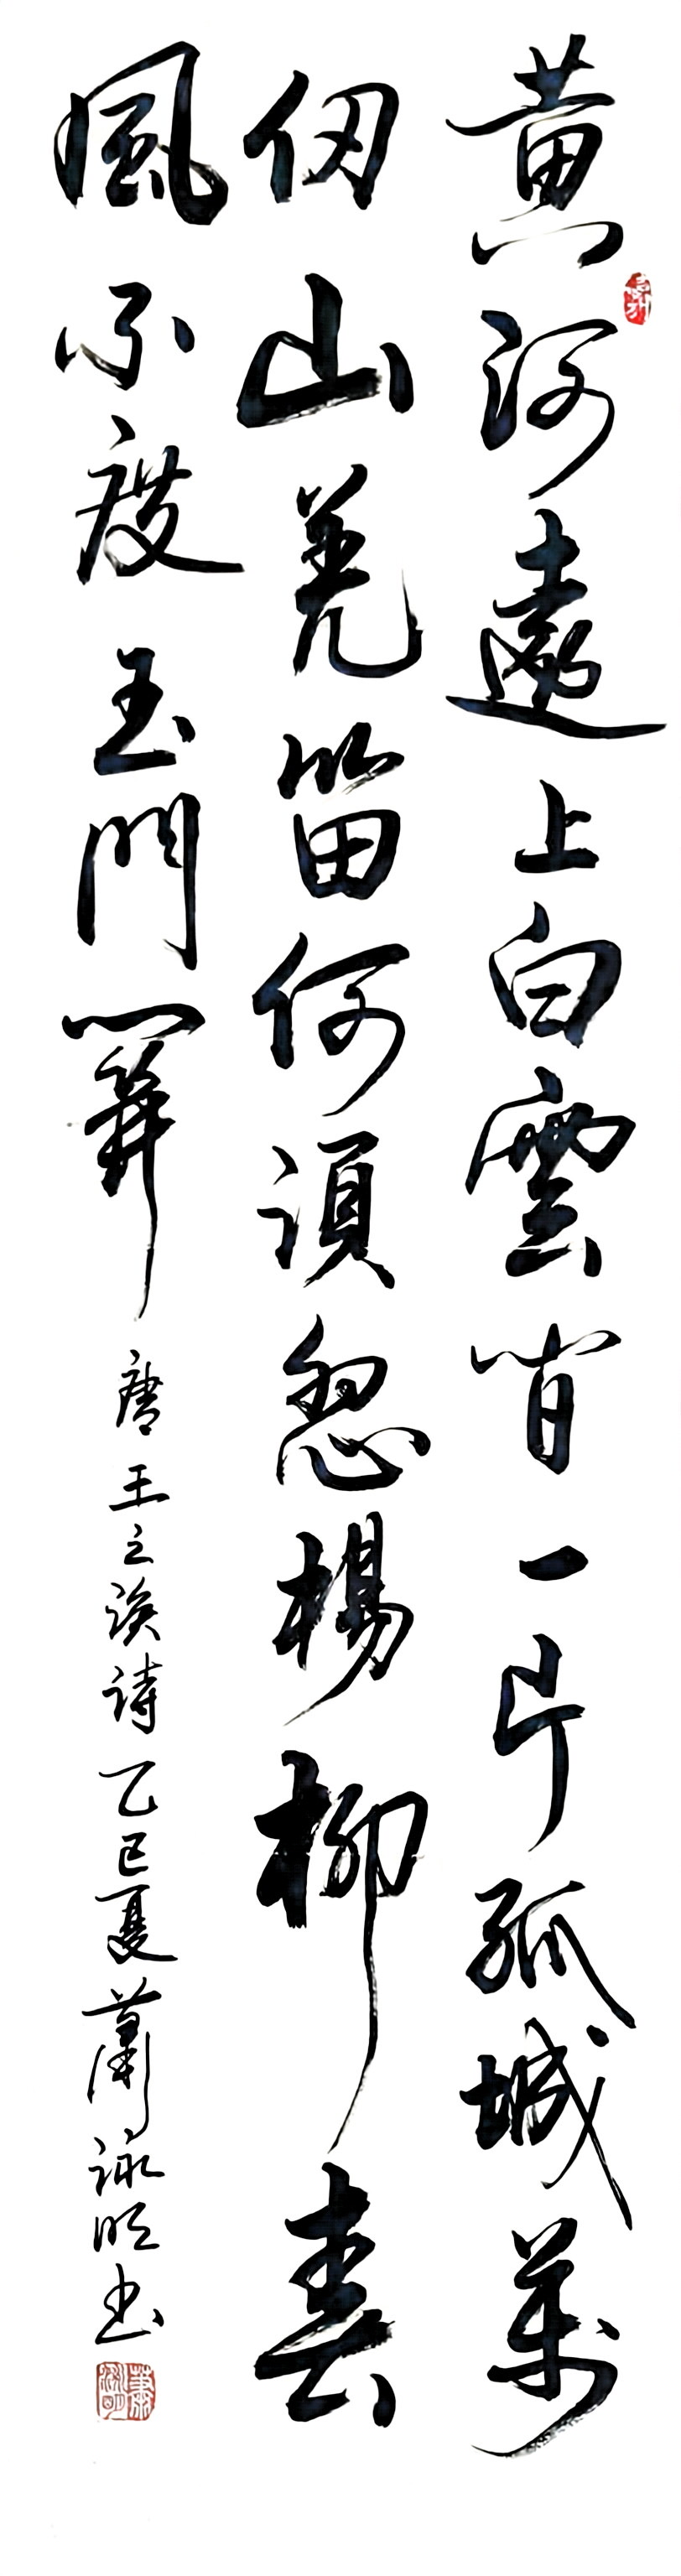 黃河遠上白雲間一片孤城萬
仞山羌笛何須怨楊柳春
風不度玉門關 唐王之渙詩 乙巳夏 蕭詠明书
蕭詠明